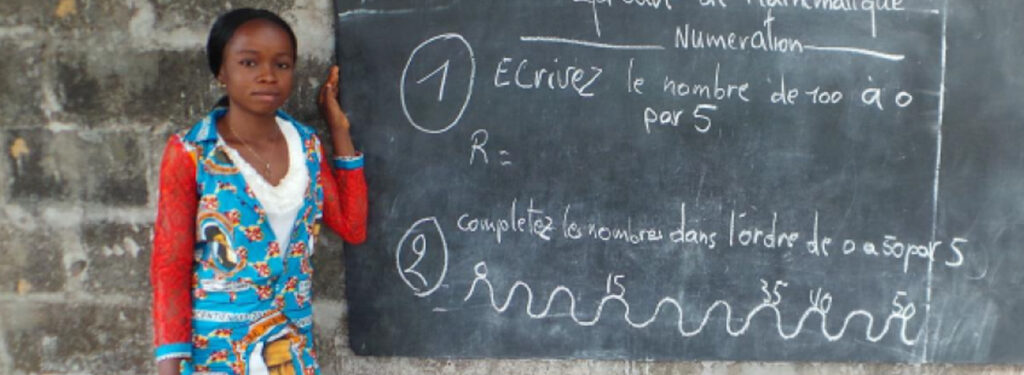 de Mathématique
Numeration
1 ECrivez le nombre de 100 à 0
par 5
R =
2 completez les nombres dans l'ordre de 0 a 50 par 5
0 15 35 40 50